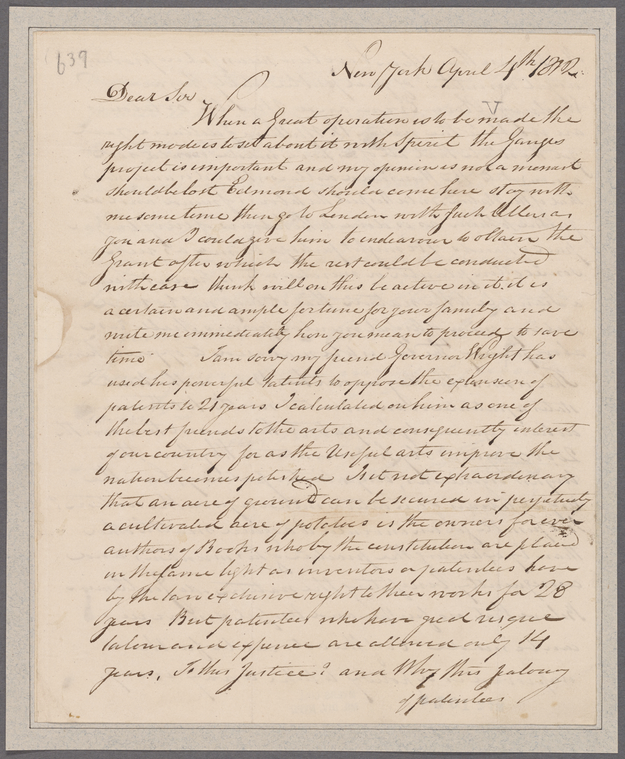 639
New York April 4th 1812.
Dear Sir
When a Great operation is to be made the
right mode is to set about it with Spirit the Ganges
project is important and my opinion is not a moment
should be lost Edmond should come here stay with
me some time then go to London with Such letters as
you and I could give him to endeavour to obtain the
Grant after which the rest could be conducted
with ease think will on this be active in it. it is
a certain and ample fortune for your family and
write me immediately how you mean to proceed to save
time I am sorry my friend Governor Wright has
used his powerful talents to oppose the expansion of
patents to 21 years I calculated on him as one of
the best friends to the arts and consequently interest
of our country for as the Useful arts improve the
nation becomes polished Is it not extraordinary
that an acre of ground can be secured in perpetuity
a cultivated acre of potatoes is the owners for ever
authors of Books who by the constitution are placed
in the same light as inventors or patentees have
by the law exclusive right to their works for 28
years But patentees who have great risque
labour and expence are allowed only 14
years, Is this Justice? and Why this jealousy
of patentees